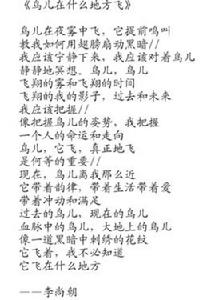 《鸟儿在什么地方飞》
鸟儿在夜雾中飞，它提前鸣叫
教我如何用翅膀扇动黑暗//
我应该宁静下来，我应该对着鸟儿
静静地冥想。鸟儿，鸟儿
飞翔的雾和飞翔的时间
飞翔的我的影子，过去和未来
我应该把握//
像把握鸟儿的姿势，我把握
一个人的命运和走向
鸟儿，它飞，真正地飞
是何等的重要//
现在，鸟儿离我那么近
它带着韵律，带着生活带着爱
带着冲动和满足
过去的鸟儿，现在的鸟儿
血脉中的鸟儿，大地上的鸟儿
像一道黑暗中刺绣的花纹
它飞着，我不必知道
它飞在什么地方
——李尚朝